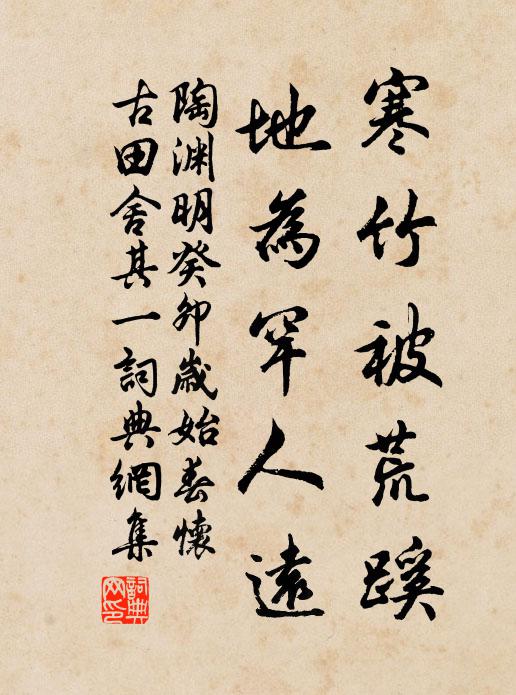 寒竹被荒蹊
地為罕人遠
陶渊明癸卯歲始春懷
古田舍其一詞典網集
詞典網印